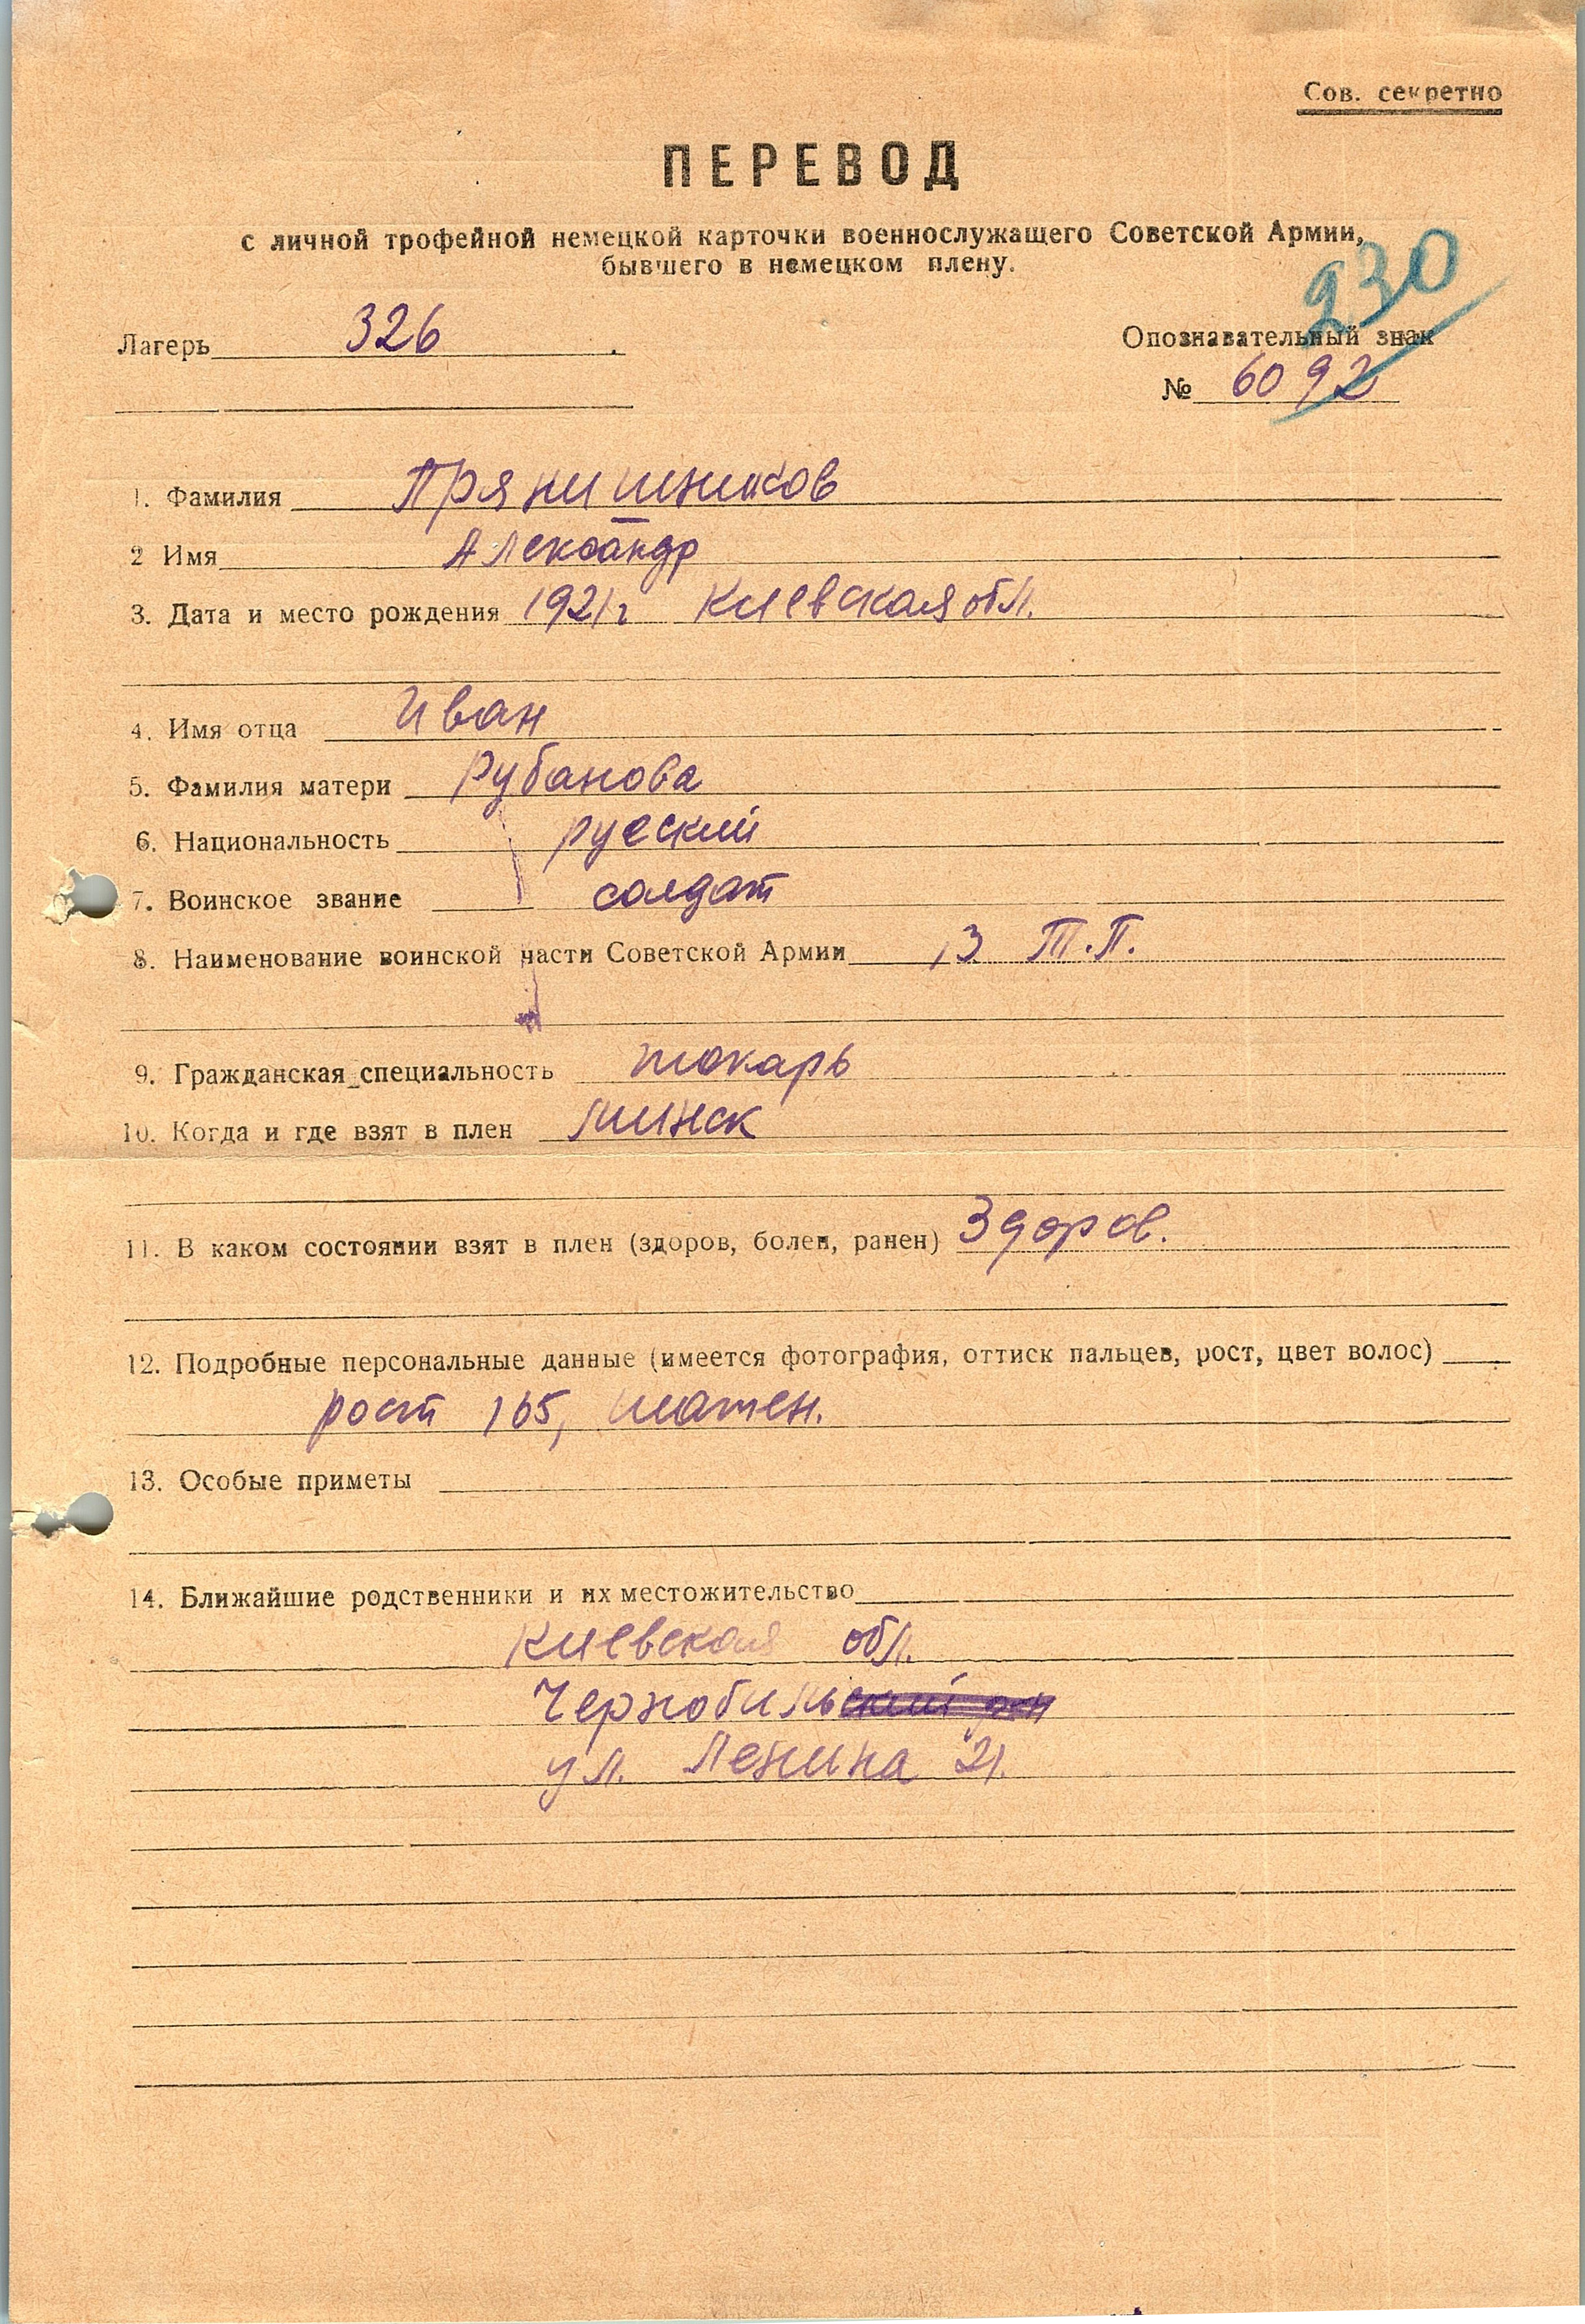 Сов. секретно
ПЕРЕВОД
с личной трофейной немецкой карточки военнослужащего Советской Армии,
бывшего в немецком плену.
230
Лагерь 326
Опознавательный знак
№ 6092
1. Фамилия Прянишников
2 Имя Александр
3. Дата и место рождения 1921 г Киевская обл.
4. Имя отца Иван
5. Фамилия матери Рубанова
6. Национальность русский
7. Воинское звание солдат
8. Наименование воинской части Советской Армии 13 Т.П.
9. Гражданская специальность токарь
10. Когда и где взят в плен Минск
11. В каком состоянии взят в плен (здоров, болен, ранен) Здоров.
12. Подробные персональные данные (имеется фотография, оттиск пальцев, рост, цвет волос)
рост 165, шатен.
13. Особые приметы
14. Ближайшие родственники и их местожительство
Киевская обл.
Чернобиль
ул. Ленина 21.